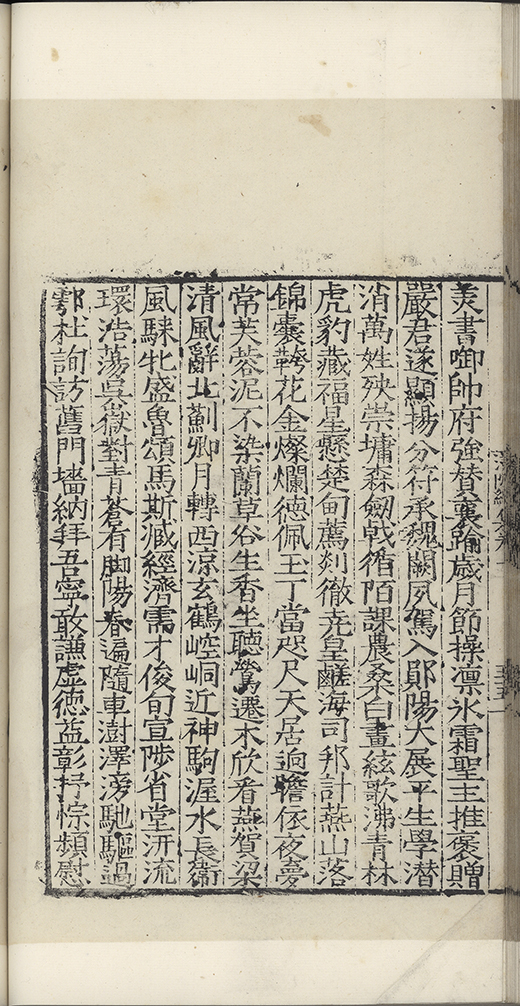 羙書喞帥府強賛襄踰歲月節操凛氷霜聖主推褒贈
嚴君遂顯揚分符承魏闕夙駕入鄖陽大展平生學潜
消萬姓殃崇墉森劒戟循陌課農桑白晝絃歌沸青林
虎豹藏福星懸楚甸薦剡徹堯皇鹺海司邦計燕山落
錦囊鞶花金燦爛徳佩玉丁當咫尺天居逈瞻依夜夢
常芙蓉泥不染蘭草谷生香坐聽鶯遷木欣看燕賀梁
清風辭北薊卿月轉西凉玄鶴崆峒近神駒渥水長衞
風騋牝盛魯頌馬斯臧經濟需才俊旬宣陟省堂汧流
環浩蕩吳嶽對青蒼有脚陽春遍隨車澍澤滂馳驅過
鄠杜詢訪舊門墻納拜吾寧敢謙虚徳益彰抒悰頻慰